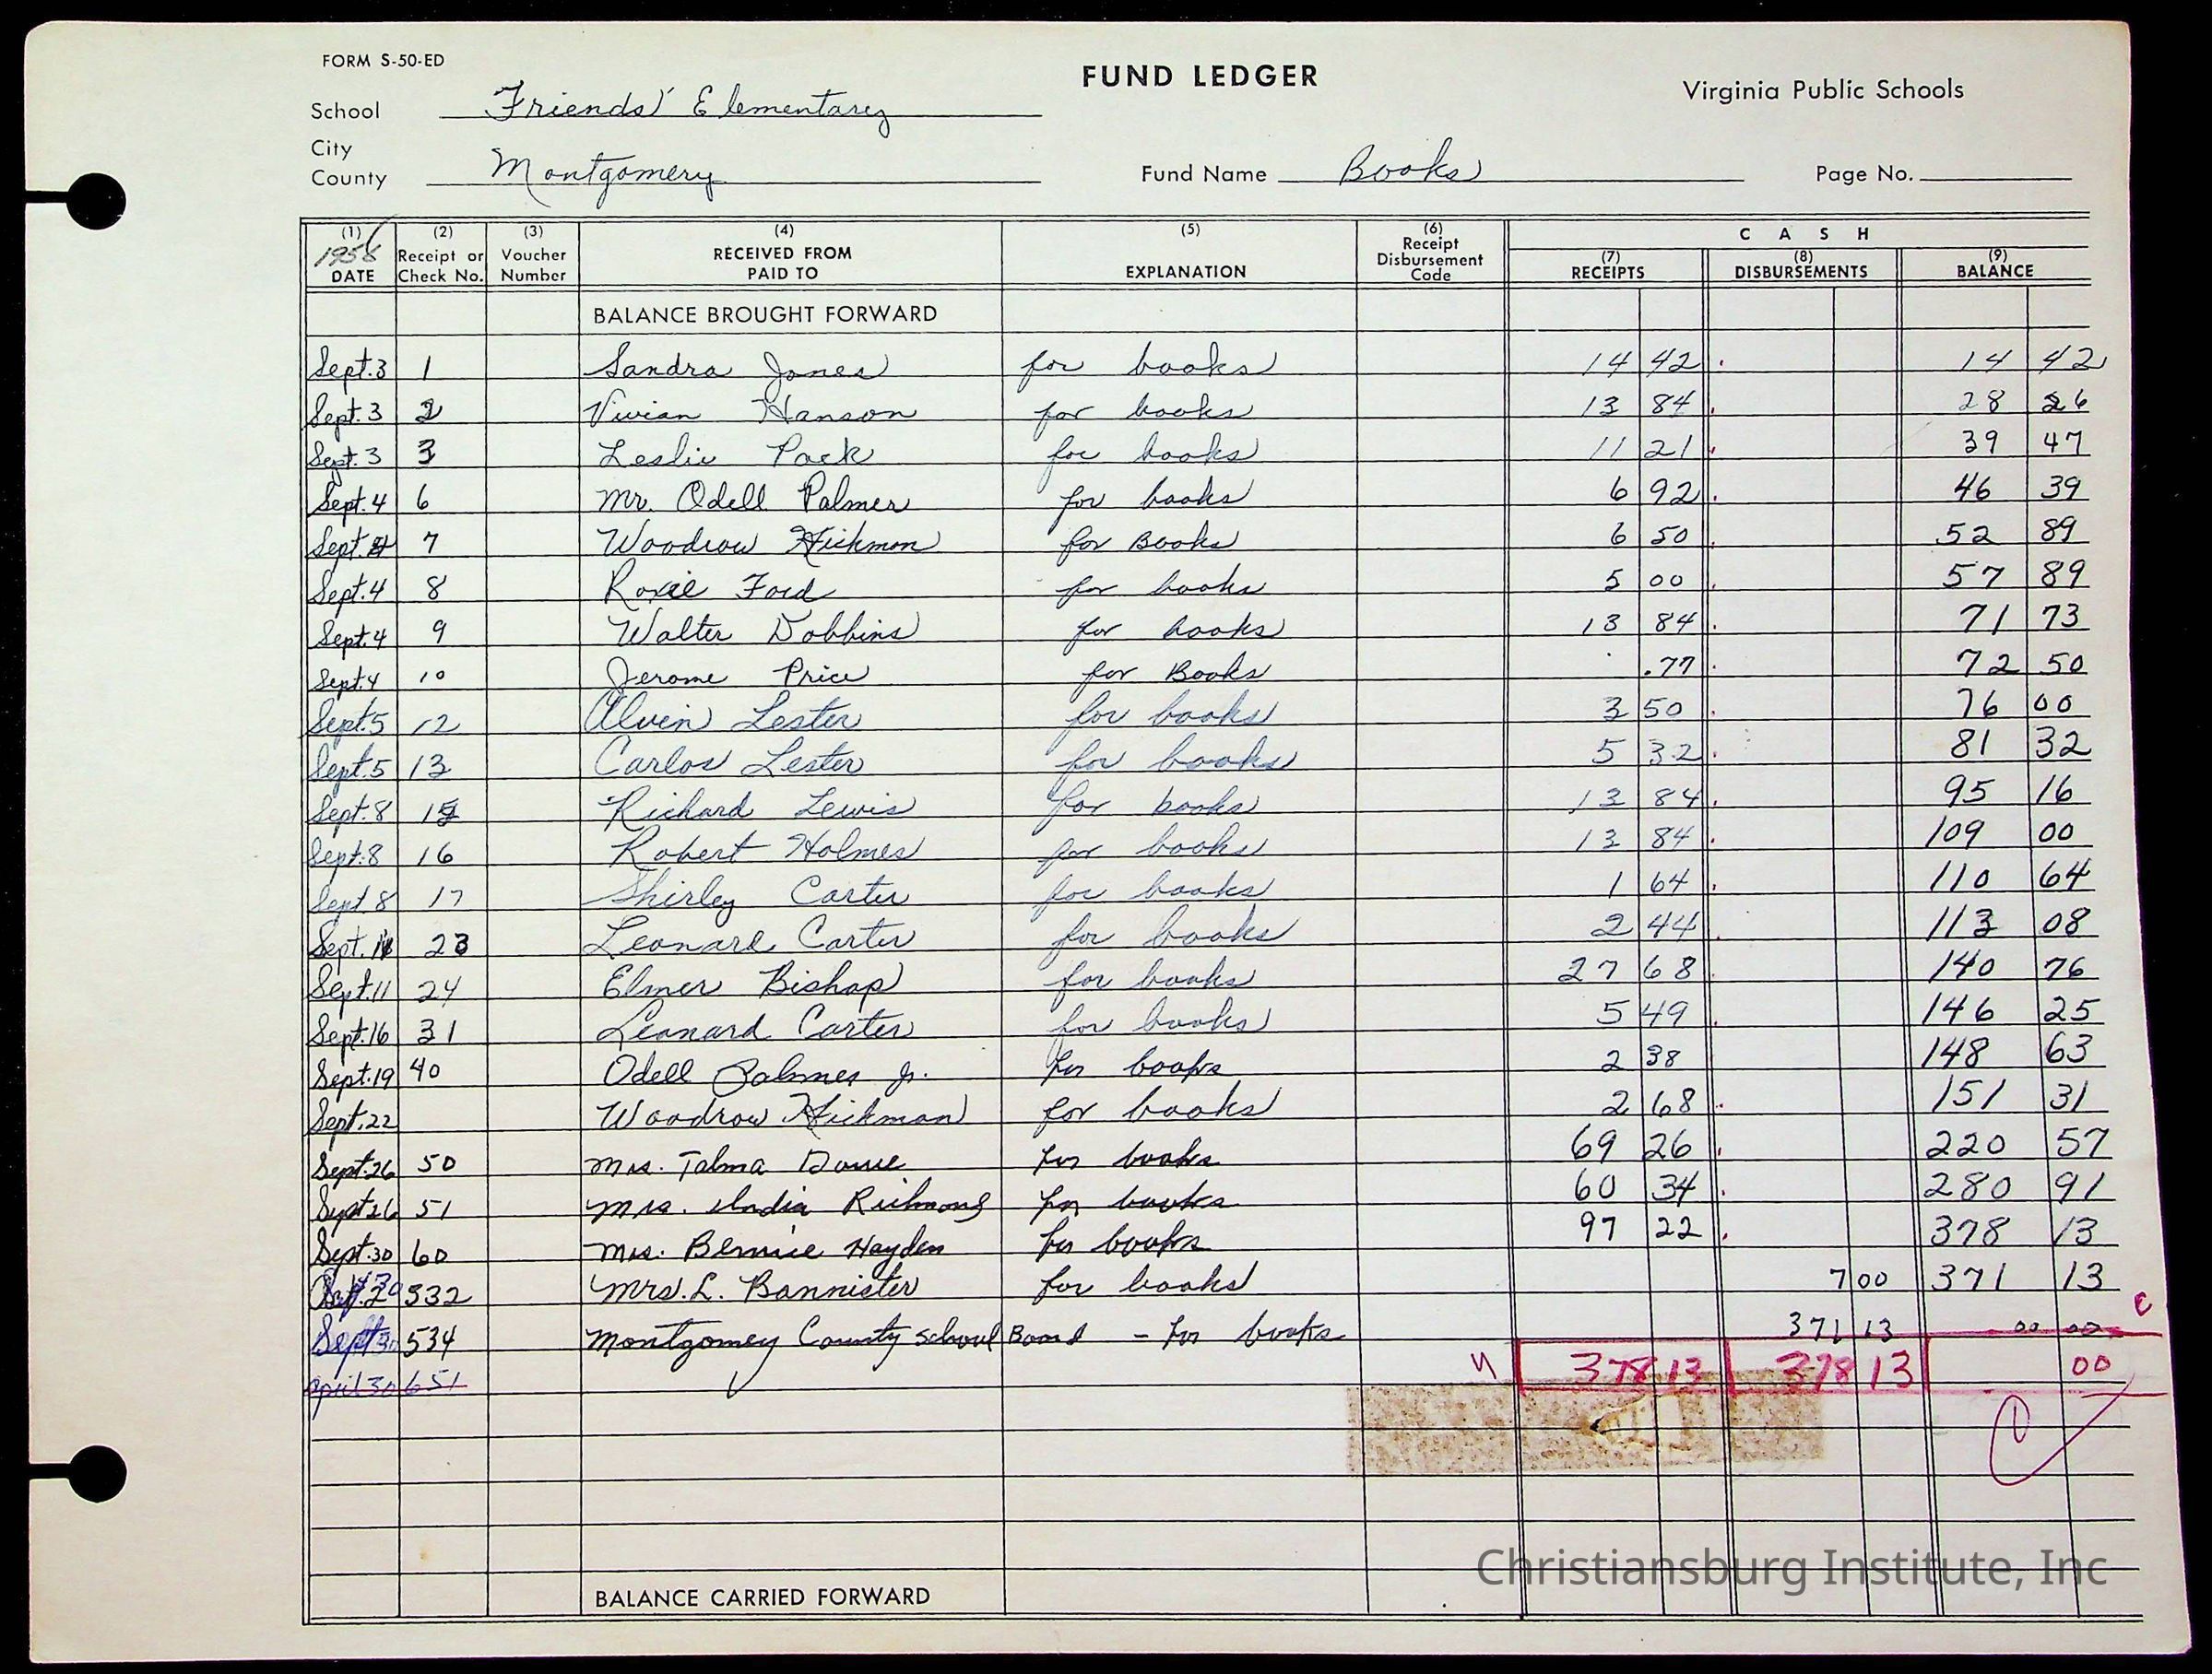 FORM S-50-ED
FUND LEDGER
Virginia Public Schools
School Friends' Elementary
City
County Montgomery
Fund Name Books
Page No.
(1) (2) (3) (4) (5) (6) C A S H
1958 DATE Receipt or Check No. Voucher Number RECEIVED FROM PAID TO EXPLANATION Receipt Disbursement Code (7) RECEIPTS (8) DISBURSEMENTS (9) BALANCE
BALANCE BROUGHT FORWARD
Sept. 3 1 Sandra Jones for books 14 42 14 42
Sept. 3 2 Vivian Hanson for books 13 84 28 26
Sept. 3 3 Leslie Pack for books 11 21 39 47
Sept. 4 6 Mr. Odell Palmer for books 6 92 46 39
Sept. 4 7 Woodrow Hickman for Books 6 50 52 89
Sept. 4 8 Roxie Ford for books 5 00 57 89
Sept. 4 9 Walter Dobbins for books 13 84 71 73
Sept. 4 10 Jerome Price for Books .77 72 50
Sept. 5 12 Alvin Lester for books 3 50 76 00
Sept. 5 13 Carlos Lester for books 5 32 81 32
Sept. 8 15 Richard Lewis for books 13 84 95 16
Sept. 8 16 Robert Holmes for books 13 84 109 00
Sept. 8 17 Shirley Carter for books 1 64 110 64
Sept. 23 Leonard Carter for books 2 44 113 08
Sept. 11 24 Elmer Bishop for books 27 68 140 76
Sept. 16 31 Leonard Carter for books 5 49 146 25
Sept. 19 40 Odell Palmer Jr. for books 2 38 148 63
Sept. 22 Woodrow Hickman for books 2 68 151 31
Sept. 26 50 Mrs. Talma for books 69 26 220 57
Sept 26 51 Mrs. India Richmond for books 60 34 280 91
Sept. 30 60 Mrs. Bernice Hayden for books 97 22 378 13
532 Mrs. L. Bannister for books 7 00 371 13
Sept 30 534 Montgomey County School Board - for books 371 13 00 00
April 30 651 378 13 378 13 00
BALANCE CARRIED FORWARD
Christiansburg Institute, Inc